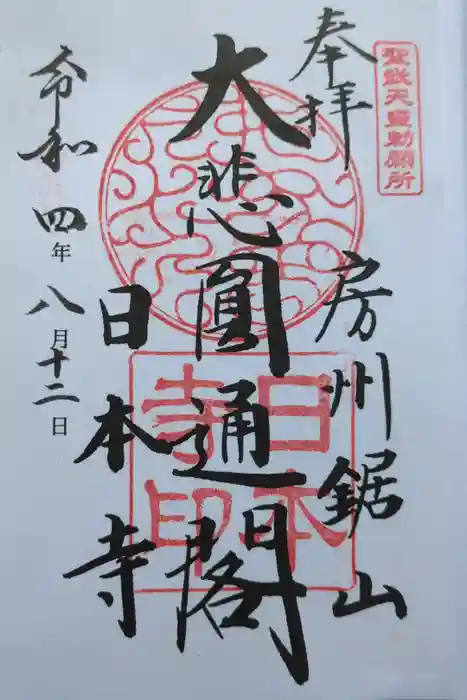 聖武天皇勅願所
奉拝
房州鋸山
大悲圓通閣
日本寺
日本寺印
令和四年八月十二日